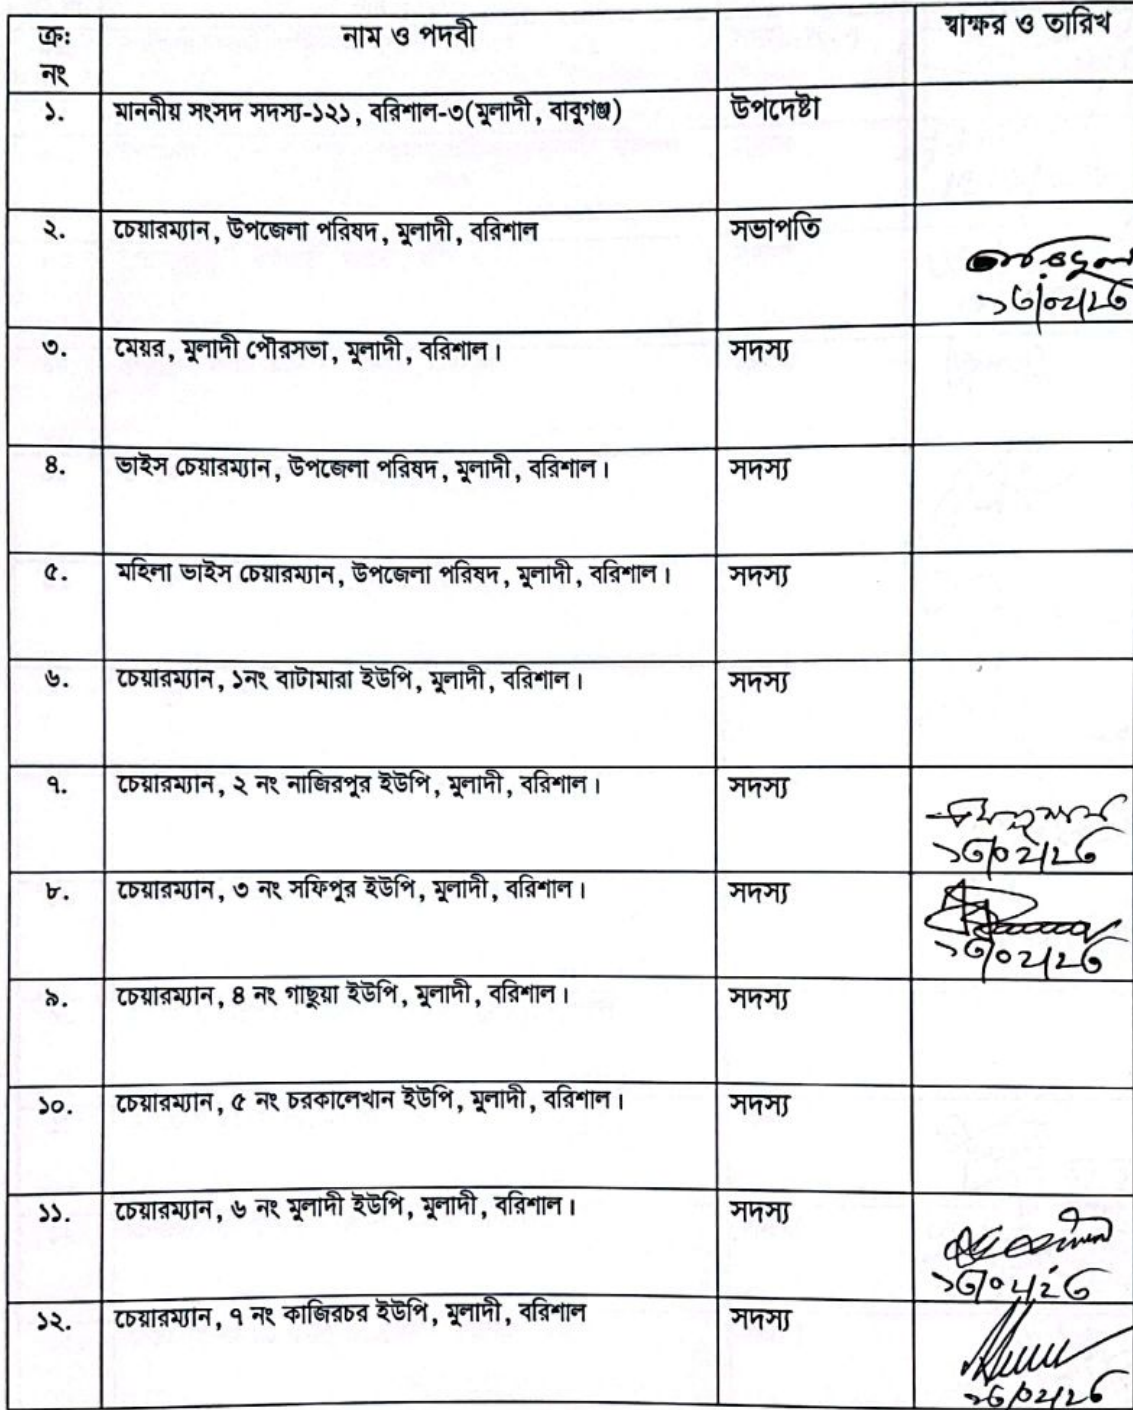 ক্রঃ নং নাম ও পদবী স্বাক্ষর ও তারিখ
১. মাননীয় সংসদ সদস্য-১২১, বরিশাল-৩(মুলাদী, বাবুগঞ্জ) উপদেষ্টা
২. চেয়ারম্যান, উপজেলা পরিষদ, মুলাদী, বরিশাল সভাপতি
১৩/০২/২৩
৩. মেয়র, মুলাদী পৌরসভা, মুলাদী, বরিশাল। সদস্য
৪. ভাইস চেয়ারম্যান, উপজেলা পরিষদ, মুলাদী, বরিশাল। সদস্য
৫. মহিলা ভাইস চেয়ারম্যান, উপজেলা পরিষদ, মুলাদী, বরিশাল। সদস্য
৬. চেয়ারম্যান, ১নং বাটামারা ইউপি, মুলাদী, বরিশাল। সদস্য
৭. চেয়ারম্যান, ২ নং নাজিরপুর ইউপি, মুলাদী, বরিশাল। সদস্য
১৩/০২/২৩
৮. চেয়ারম্যান, ৩ নং সফিপুর ইউপি, মুলাদী, বরিশাল। সদস্য
১৩/০২/২৩
৯. চেয়ারম্যান, ৪ নং গাছুয়া ইউপি, মুলাদী, বরিশাল। সদস্য
১০. চেয়ারম্যান, ৫ নং চরকালেখান ইউপি, মুলাদী, বরিশাল। সদস্য
১১. চেয়ারম্যান, ৬ নং মুলাদী ইউপি, মুলাদী, বরিশাল। সদস্য
১৩/০২/২৩
১২. চেয়ারম্যান, ৭ নং কাজিরচর ইউপি, মুলাদী, বরিশাল সদস্য
১৩/০২/২৩